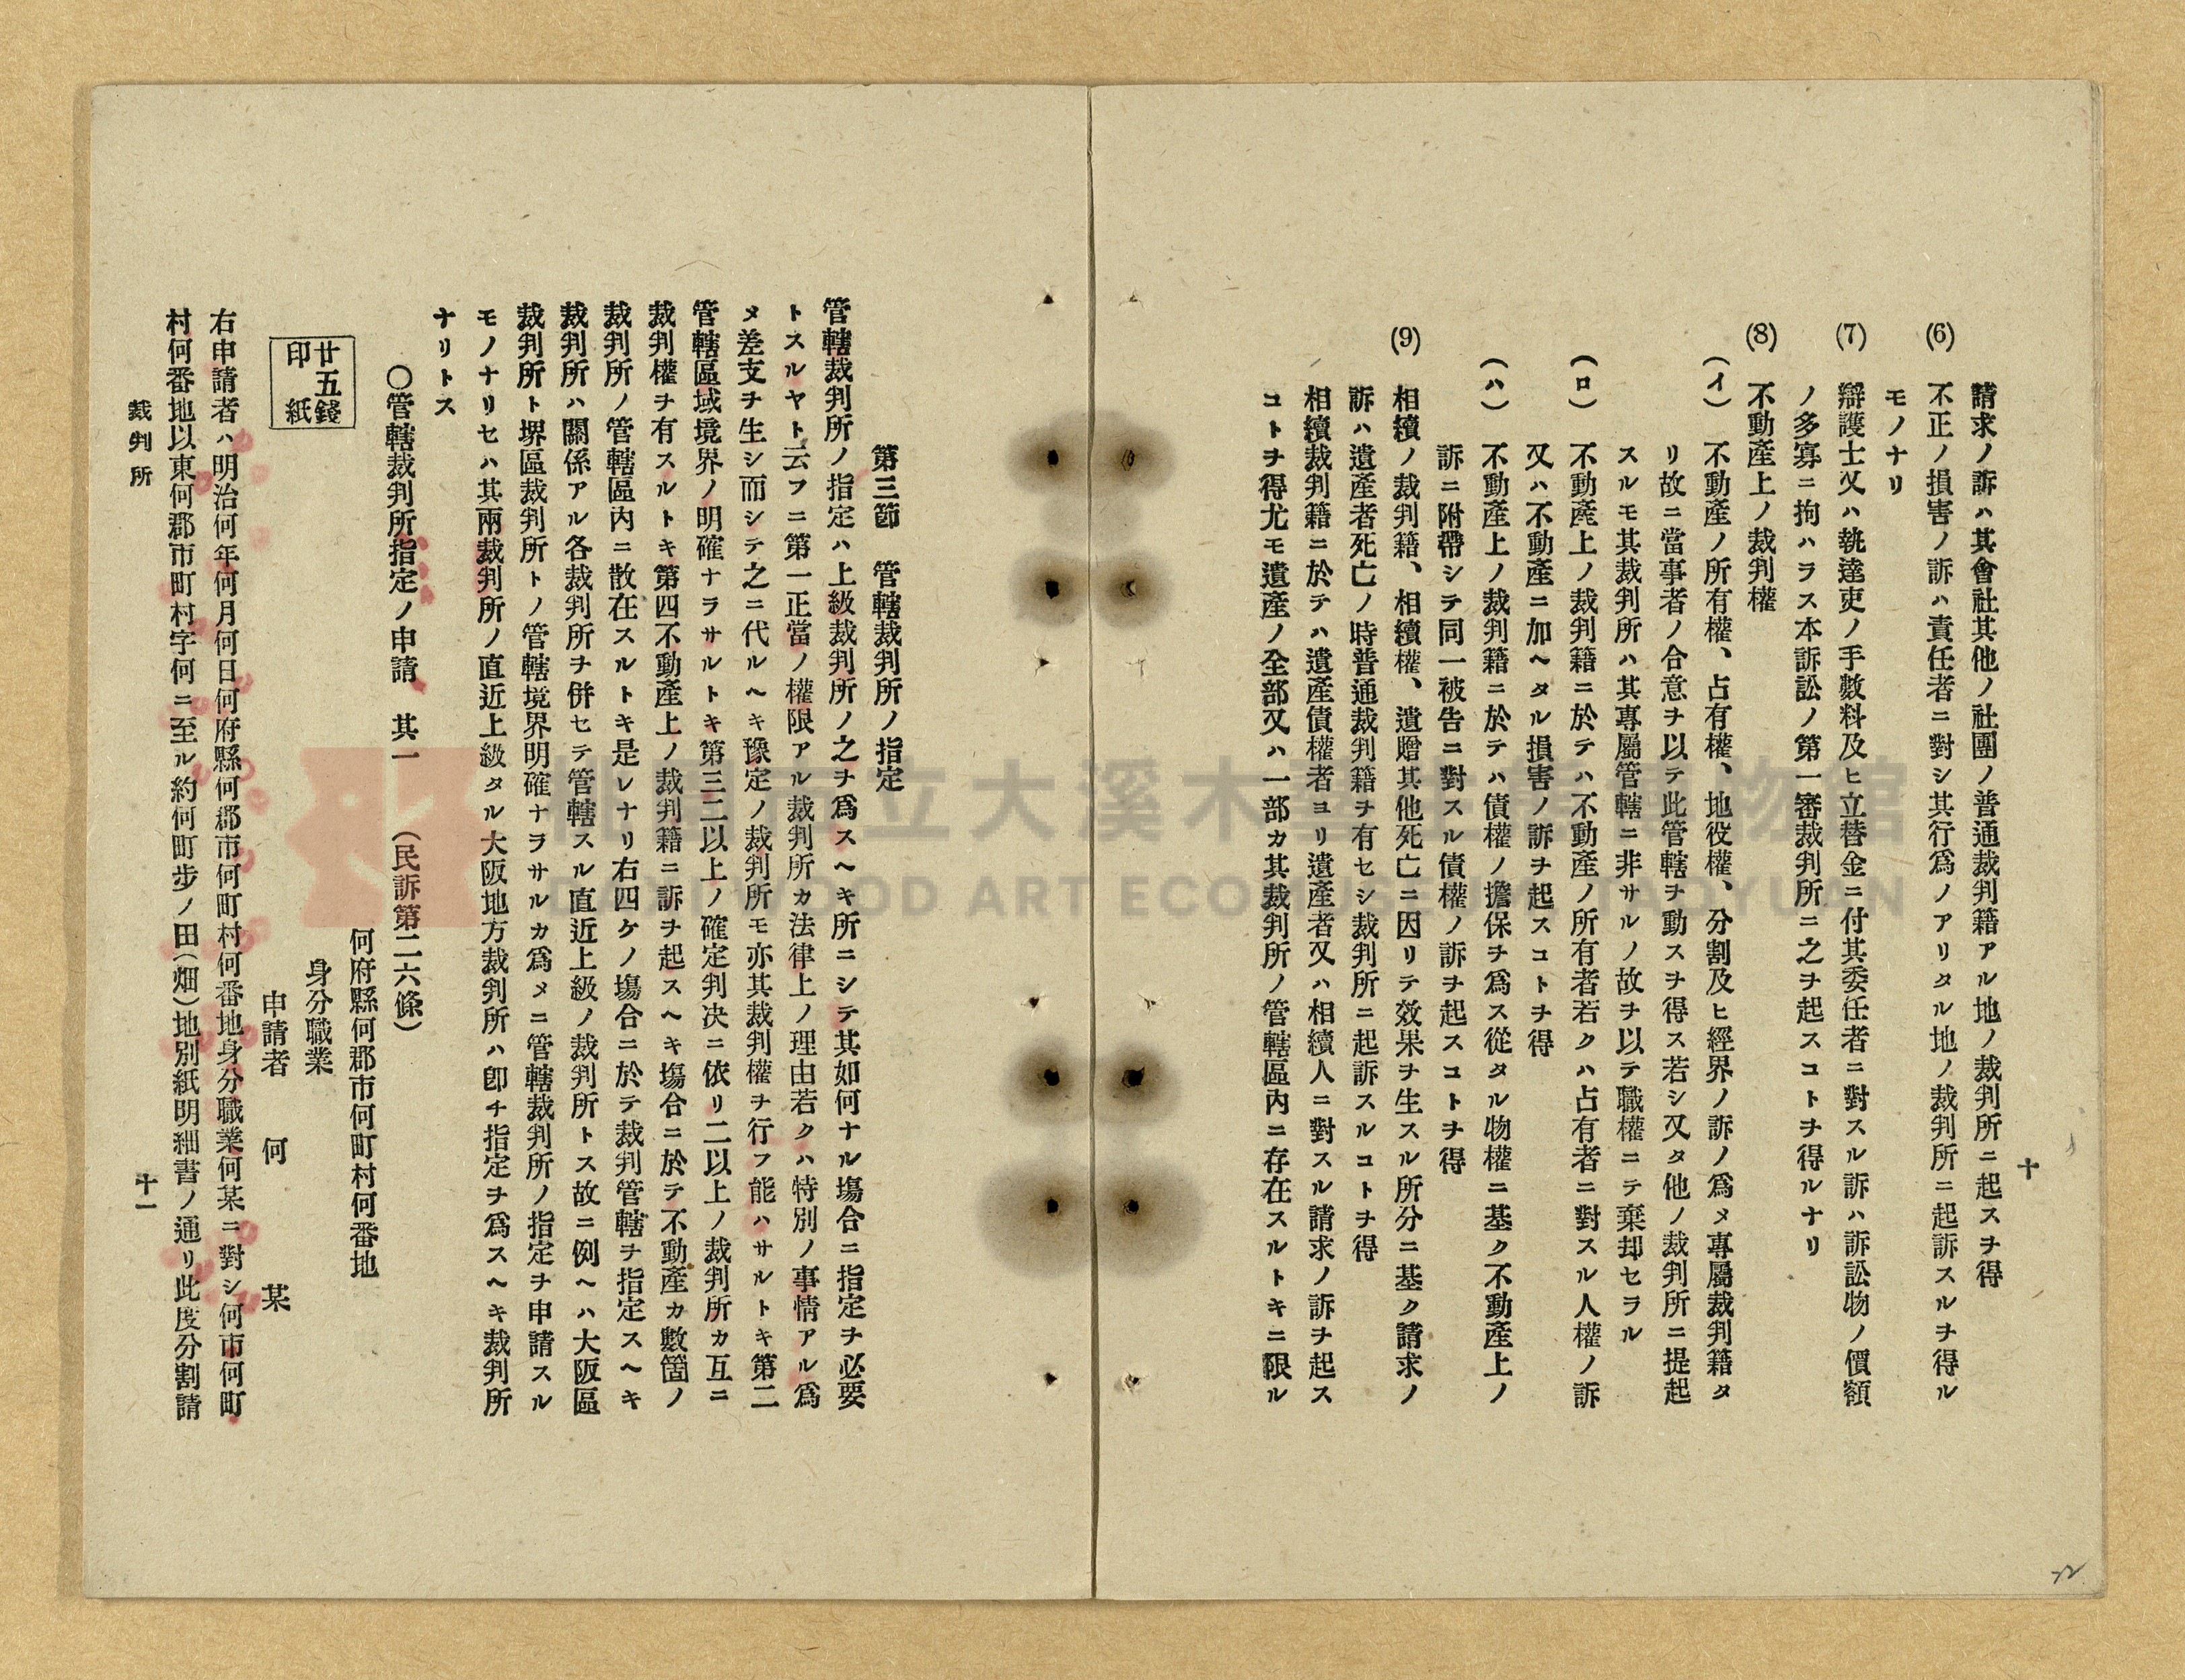 十
請求ノ訴ハ其會社其他ノ社團ノ普通裁判籍アル地ノ裁判所ニ起スヲ得
(6) 不正ノ損害ノ訴ハ責任者ニ對シ其行爲ノアリタル地ノ裁判所ニ起訴スルヲ得ル
モノナリ
(7) 辯護士又ハ執達吏ノ手數料及ヒ立替金ニ付其委任者ニ對スル訴ハ訴訟物ノ價額
ノ多寡ニ拘ハラス本訴訟ノ第一審裁判所ニ之ヲ起スコトヲ得ルナリ
(8) 不動產上ノ裁判權
(イ) 不動產ノ所有權、占有權、地役權、分割及ヒ經界ノ訴ノ爲メ專屬裁判籍タ
リ故ニ當事者ノ合意ヲ以テ此管轄ヲ動スヲ得ス若シ又タ他ノ裁判所ニ提起
スルモ其裁判所ハ其專屬管轄ニ非サルノ故ヲ以テ職權ニテ棄却セラル
(ロ) 不動產上ノ裁判籍ニ於テハ不動產ノ所有者若クハ占有者ニ對スル人權ノ訴
又ハ不動產ニ加ヘタル損害ノ訴ヲ起スコトヲ得
(ハ) 不動產上ノ裁判籍ニ於テハ債權ノ擔保ヲ爲ス從タル物權ニ基ク不動產上ノ
訴ニ附帶シテ同一被告ニ對スル債權ノ訴ヲ起スコトヲ得
(9) 相續ノ裁判籍、相續權、遺贈其他死亡ニ因リテ效果ヲ生スル所分ニ基ク請求ノ
訴ハ遺產者死亡ノ時普通裁判籍ヲ有セシ裁判所ニ起訴スルコトヲ得
相續裁判籍ニ於テハ遺產債權者ヨリ遺產者又ハ相續人ニ對スル請求ノ訴ヲ起ス
コトヲ得尤モ遺產ノ全部又ハ一部カ其裁判所ノ管轄區內ニ存在スルトキニ限ル
第三節 管轄裁判所ノ指定
管轄裁判所ノ指定ハ上級裁判所ノ之ヲ爲スヘキ所ニシテ其如何ナル塲合ニ指定ヲ必要
トスルヤト云フニ第一正當ノ權限アル裁判所カ法律上ノ理由若クハ特別ノ事情アル爲
メ差支ヲ生シ而シテ之ニ代ルヘキ豫定ノ裁判所モ亦其裁判權ヲ行フ能ハサルトキ第二
管轄區域境界ノ明確ナラサルトキ第三二以上ノ確定判決ニ依リ二以上ノ裁判所カ互ニ
裁判權ヲ有スルトキ第四不動產上ノ裁判籍ニ訴ヲ起スヘキ塲合ニ於テ不動產カ數箇ノ
裁判所ノ管轄區內ニ散在スルトキ是レナリ右四ケノ塲合ニ於テ裁判管轄ヲ指定スヘキ
裁判所ハ關係アル各裁判所ヲ併セテ管轄スル直近上級ノ裁判所トス故ニ例ヘハ大阪區
裁判所ト堺區裁判所トノ管轄境界明確ナヲサルカ爲メニ管轄裁判所ノ指定ヲ申請スル
モノナリセハ其兩裁判所ノ直近上級タル大阪地方裁判所ハ卽チ指定ヲ爲スヘキ裁判所
ナリトス
〇管轄裁判所指定ノ申請 其一 (民訴第二六條)
何府縣何郡市何町村何番地
廿五錢
印紙
身分職業
申請者 何 某
右申請者ハ明治何年何月何日何府縣何郡市何町村何番地身分職業何某ニ對シ何市何町
村何番地以東何郡市町村字何ニ至ル約何町步ノ田(畑)地別紙明細書ノ通リ此度分割請
裁判所
十一
大溪木藝生態博物館
WOOD ART ECOMUSEUM TAOYUAN